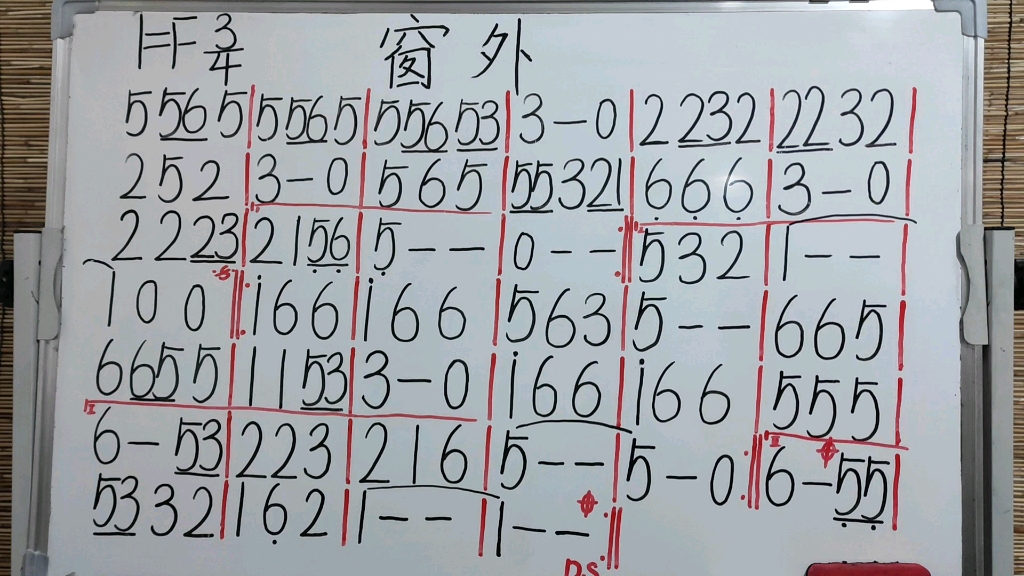 1=F 3/4 窗外
5 565|5 565|5 5653|3-0|2 232|2232|
252|3-0|565|55321|666|3-0|
2223|2156|5--|0--:‖532|1--|
100‖:i66|i66|563|5--|665|
6655|1153|3-0|i66|i66|555|
6-53|223|216|5--|5-0:‖6-55|
53332|162|1--|1--:‖
D.S.